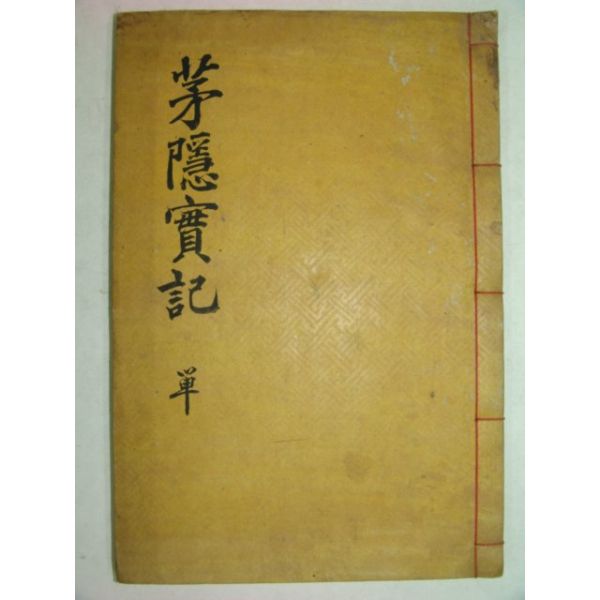 茅隱實記
單